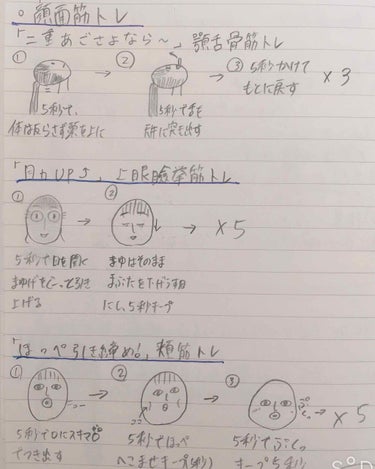 。顔面筋トレ
「二重あごさよなら〜」顎舌骨筋トレ
① → ② → ③ 5秒かけて もとに戻す ×3
5秒で、 5秒で舌を
体は反らさず顔を上に 天井に突き出す
「目力UP♪」上眼瞼挙筋トレ
① → ② → ×5
5秒で目を開く まゆはそのまま
まゆげをぐーっと引き まぶたを下げうす目
上げる にし、5秒キープ
「ほっぺ引き締め!」頬筋トレ
① → ② → ③ → ×5
5秒で口にスキマ 5秒でほっぺ 5秒でぷくっ
でつき出す へこませキープ(5秒) キープ5秒